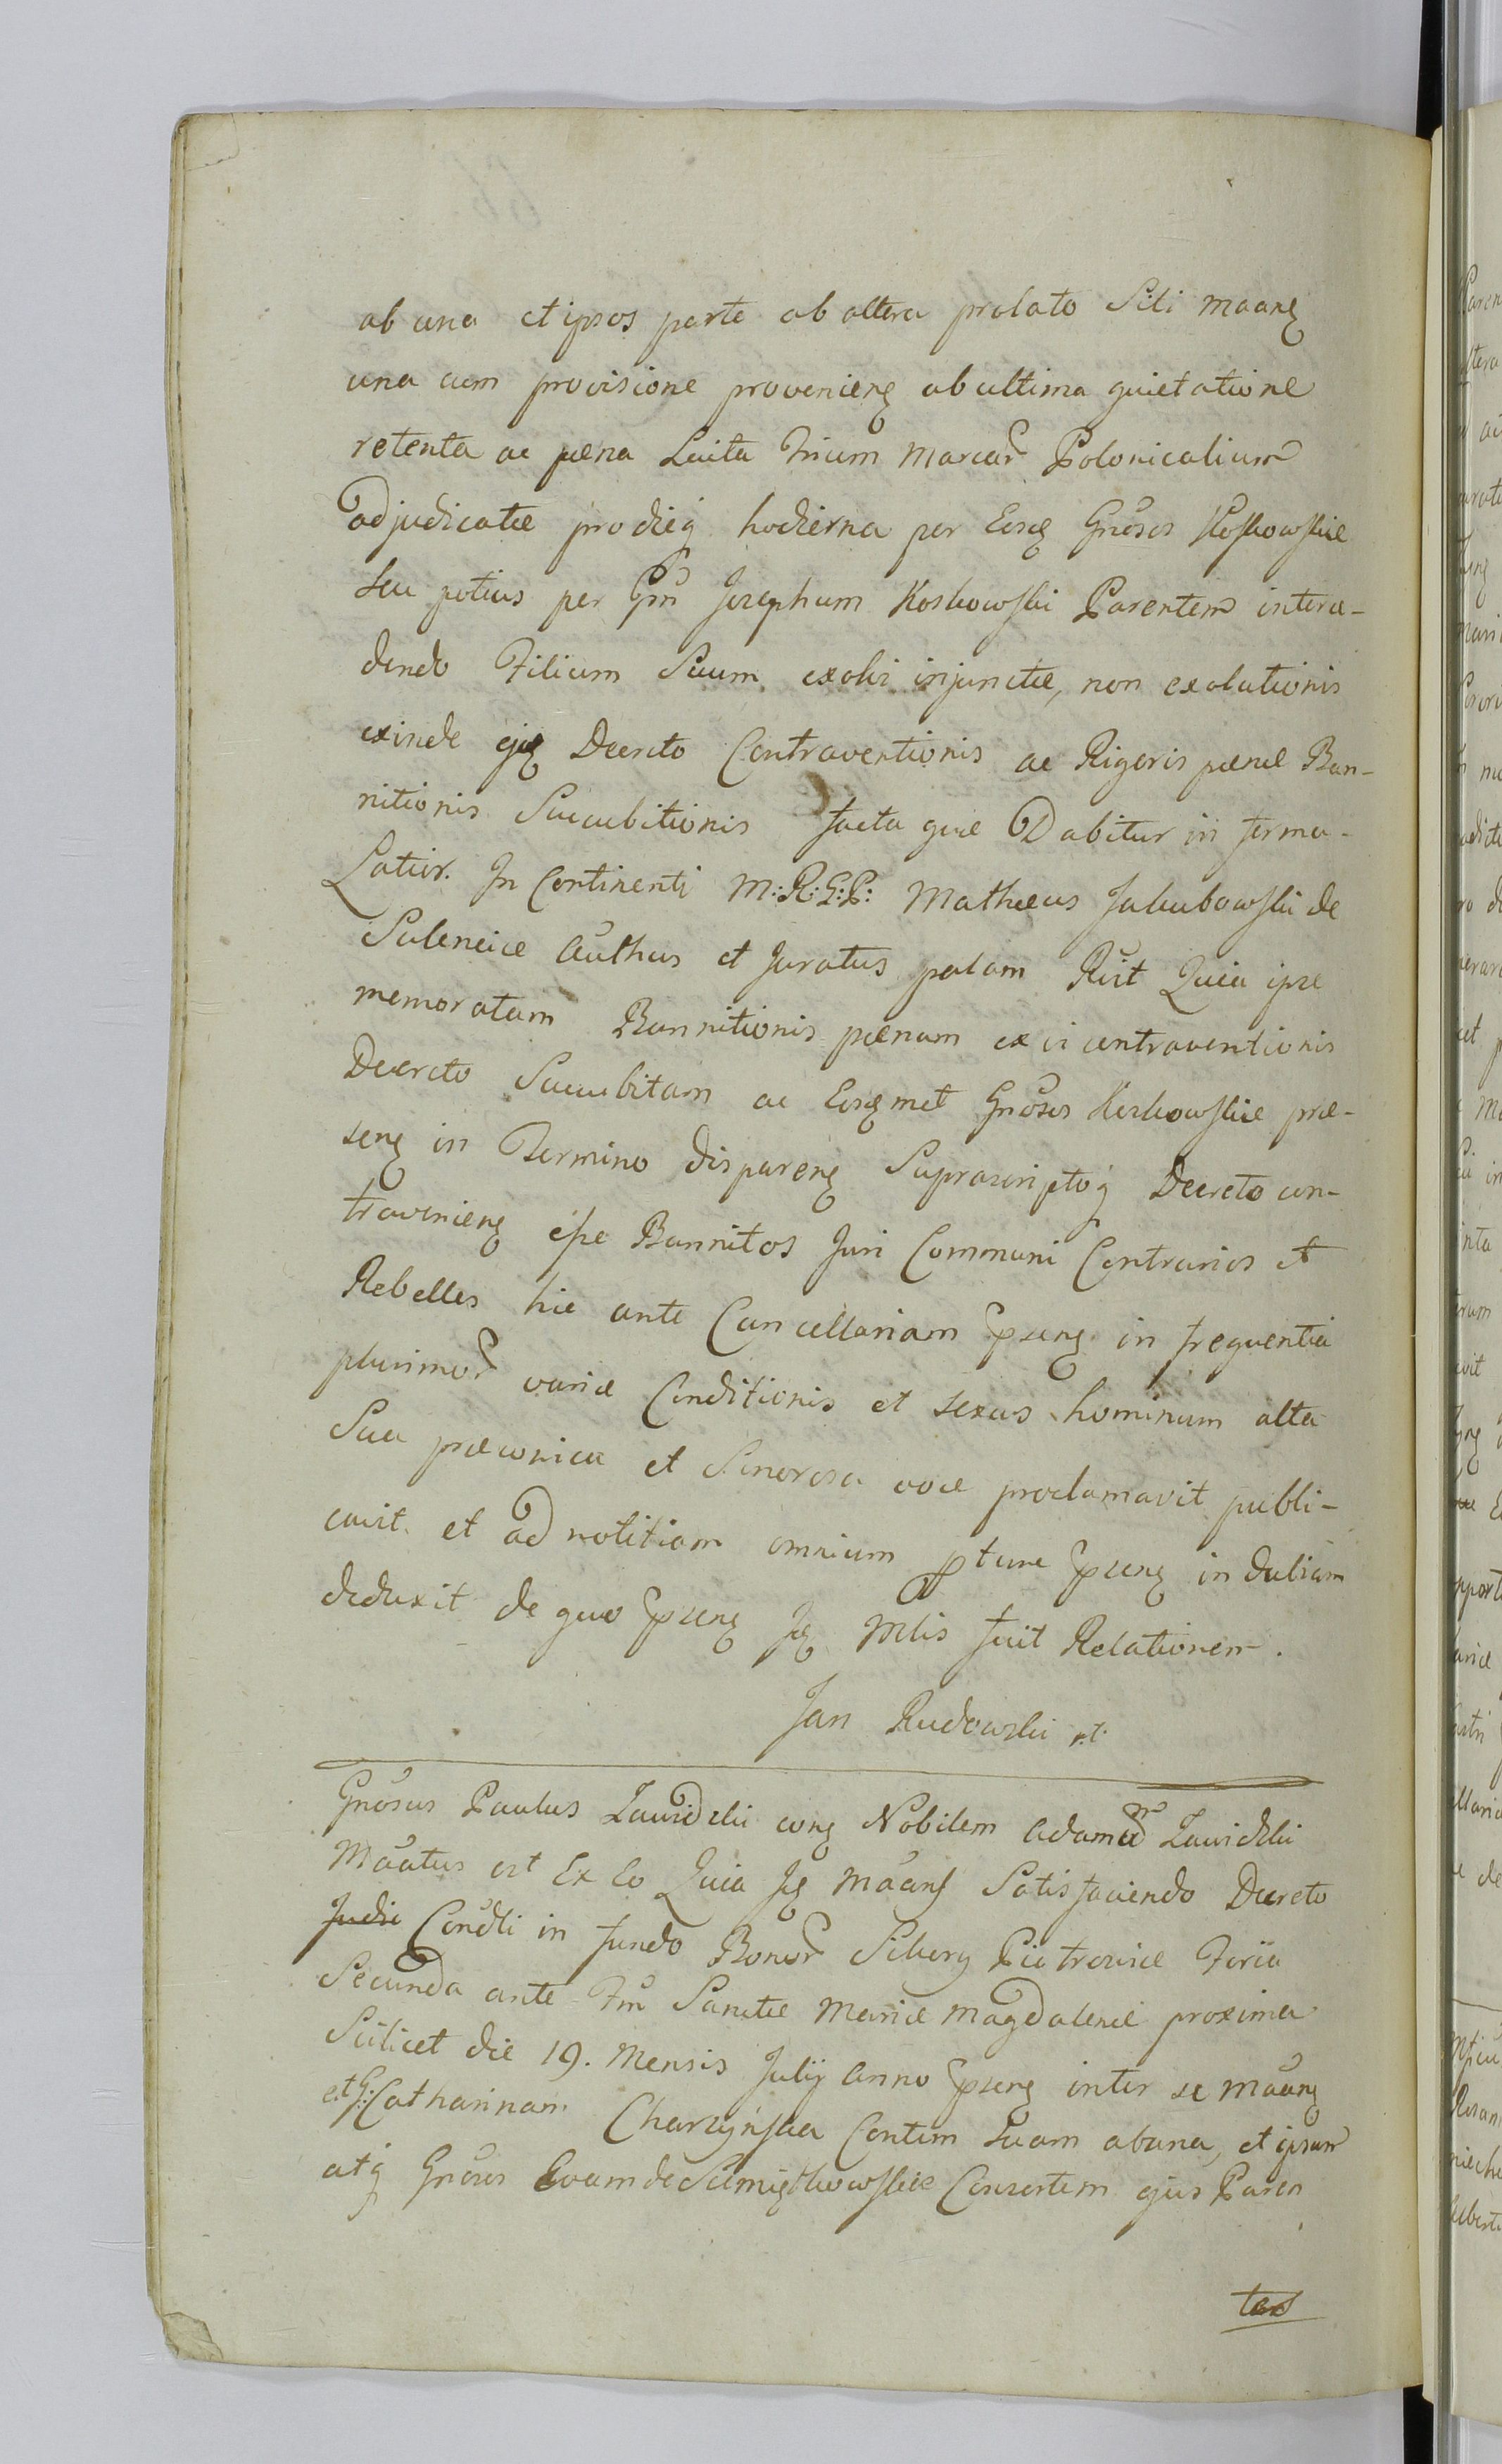 ab una et ipsos parte ab altera prolato Siti maang
una cum provisione provenieng ab ultima quietatione
retenta ac pæna Luita Trium Marcar Polonicalium
adjudicatæ pro dieq hodierna per Eosq Gnosos Koskowskie
seu potius per Gm Josephum Koskowski Parentem interce-
dendo Filium Suum exolvi injunctæ, non exolutionis
exinde ejq Decreto Contraventionis ac Rigoris pænæ Ban-
nitionis Succubitionis facta quæ Dabitur in forma
Latior. In Continenti M:R:G:P: Matheus Jakubowski de
Sulencice Authus et Juratus palam Rvit Quia ipse
memoratam Bannitionis pænam ex vi contraventionis
Decreto Succubitam ac Eosqmet Gnosos Koskowskie præ-
seng in Termino dispareng Suprascriptoq Decreto con-
travenieng esse Bannitos Juri Communi Contrarios et
Rebelles hic ante Cancellariam pseng in frequentia
plurimor variæ Conditionis et sexus hominum alta
Sua præconica et Sonorosa voce proclamavit publi-
cavit et ad notitiam omnium ptune pseng in dubiam
deduxit de quo pseng Jq Mlis fuit Relationem.
Jan Rudowski
Gnosus Paulus Zawidzki cong Nobilem Adamum Zawidzki
Māatus est Ex Eo Quia Jq Māang Satisfaciendo Decreto
Judi Condli in fundo Bonor Sikory Pietrowice Feria
Secunda ante Fm Sanctæ Mariæ Magdalenæ proxima
Scilicet die 19. Mensis Julij Anno pseng inter se māang
et G: Catharinam Charzynska Contem Suam ab una, et ipsum
atq Gnosos Evam de Koskie Consortem ejus Paren
tes